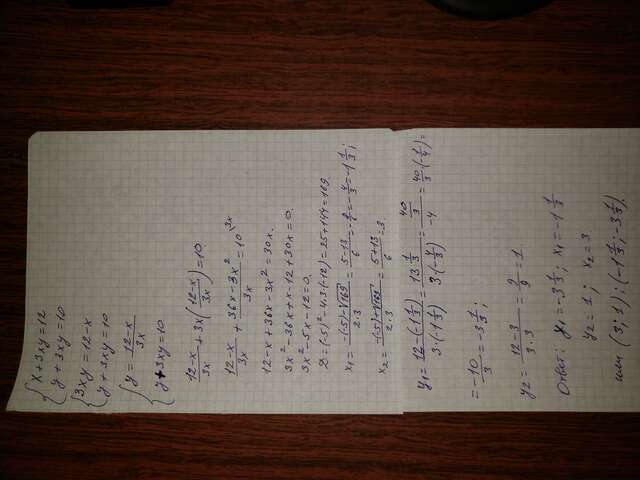 { x + 3xy = 12
{ y + 3xy = 10
{ 3xy = 12 - x
{ y + 3xy = 10
{ y = (12-x)/(3x)
{ y + 3xy = 10
(12-x)/(3x) + 3x((12-x)/(3x)) = 10
(12-x)/(3x) + (36x-3x²)/(3x) = 10 \3x
12 - x + 36x - 3x² = 30x.
3x² - 36x + x - 12 + 30x = 0.
3x² - 5x - 12 = 0.
D = (-5)² - 4·3·(-12) = 25 + 144 = 169.
x₁ = (-(-5) - √169)/(2·3) = (5-13)/6 = -8/6 = -4/3 = -1 1/3;
x₂ = (-(-5) + √169)/(2·3) = (5+13)/6 = 3.
y₁ = (12-(-1 1/3))/(3·(-1 1/3)) = (13 1/3)/(3·(-4/3)) = (40/3)/(-4) = 40/3·(-1/4) =
= -10/3 = -3 1/3;
y₂ = (12-3)/(3·3) = 9/9 = 1.
Ответ: y₁ = -3 1/3; x₁ = -1 1/3
y₂ = 1; x₂ = 3
или (3; 1); (-1 1/3; -3 1/3).